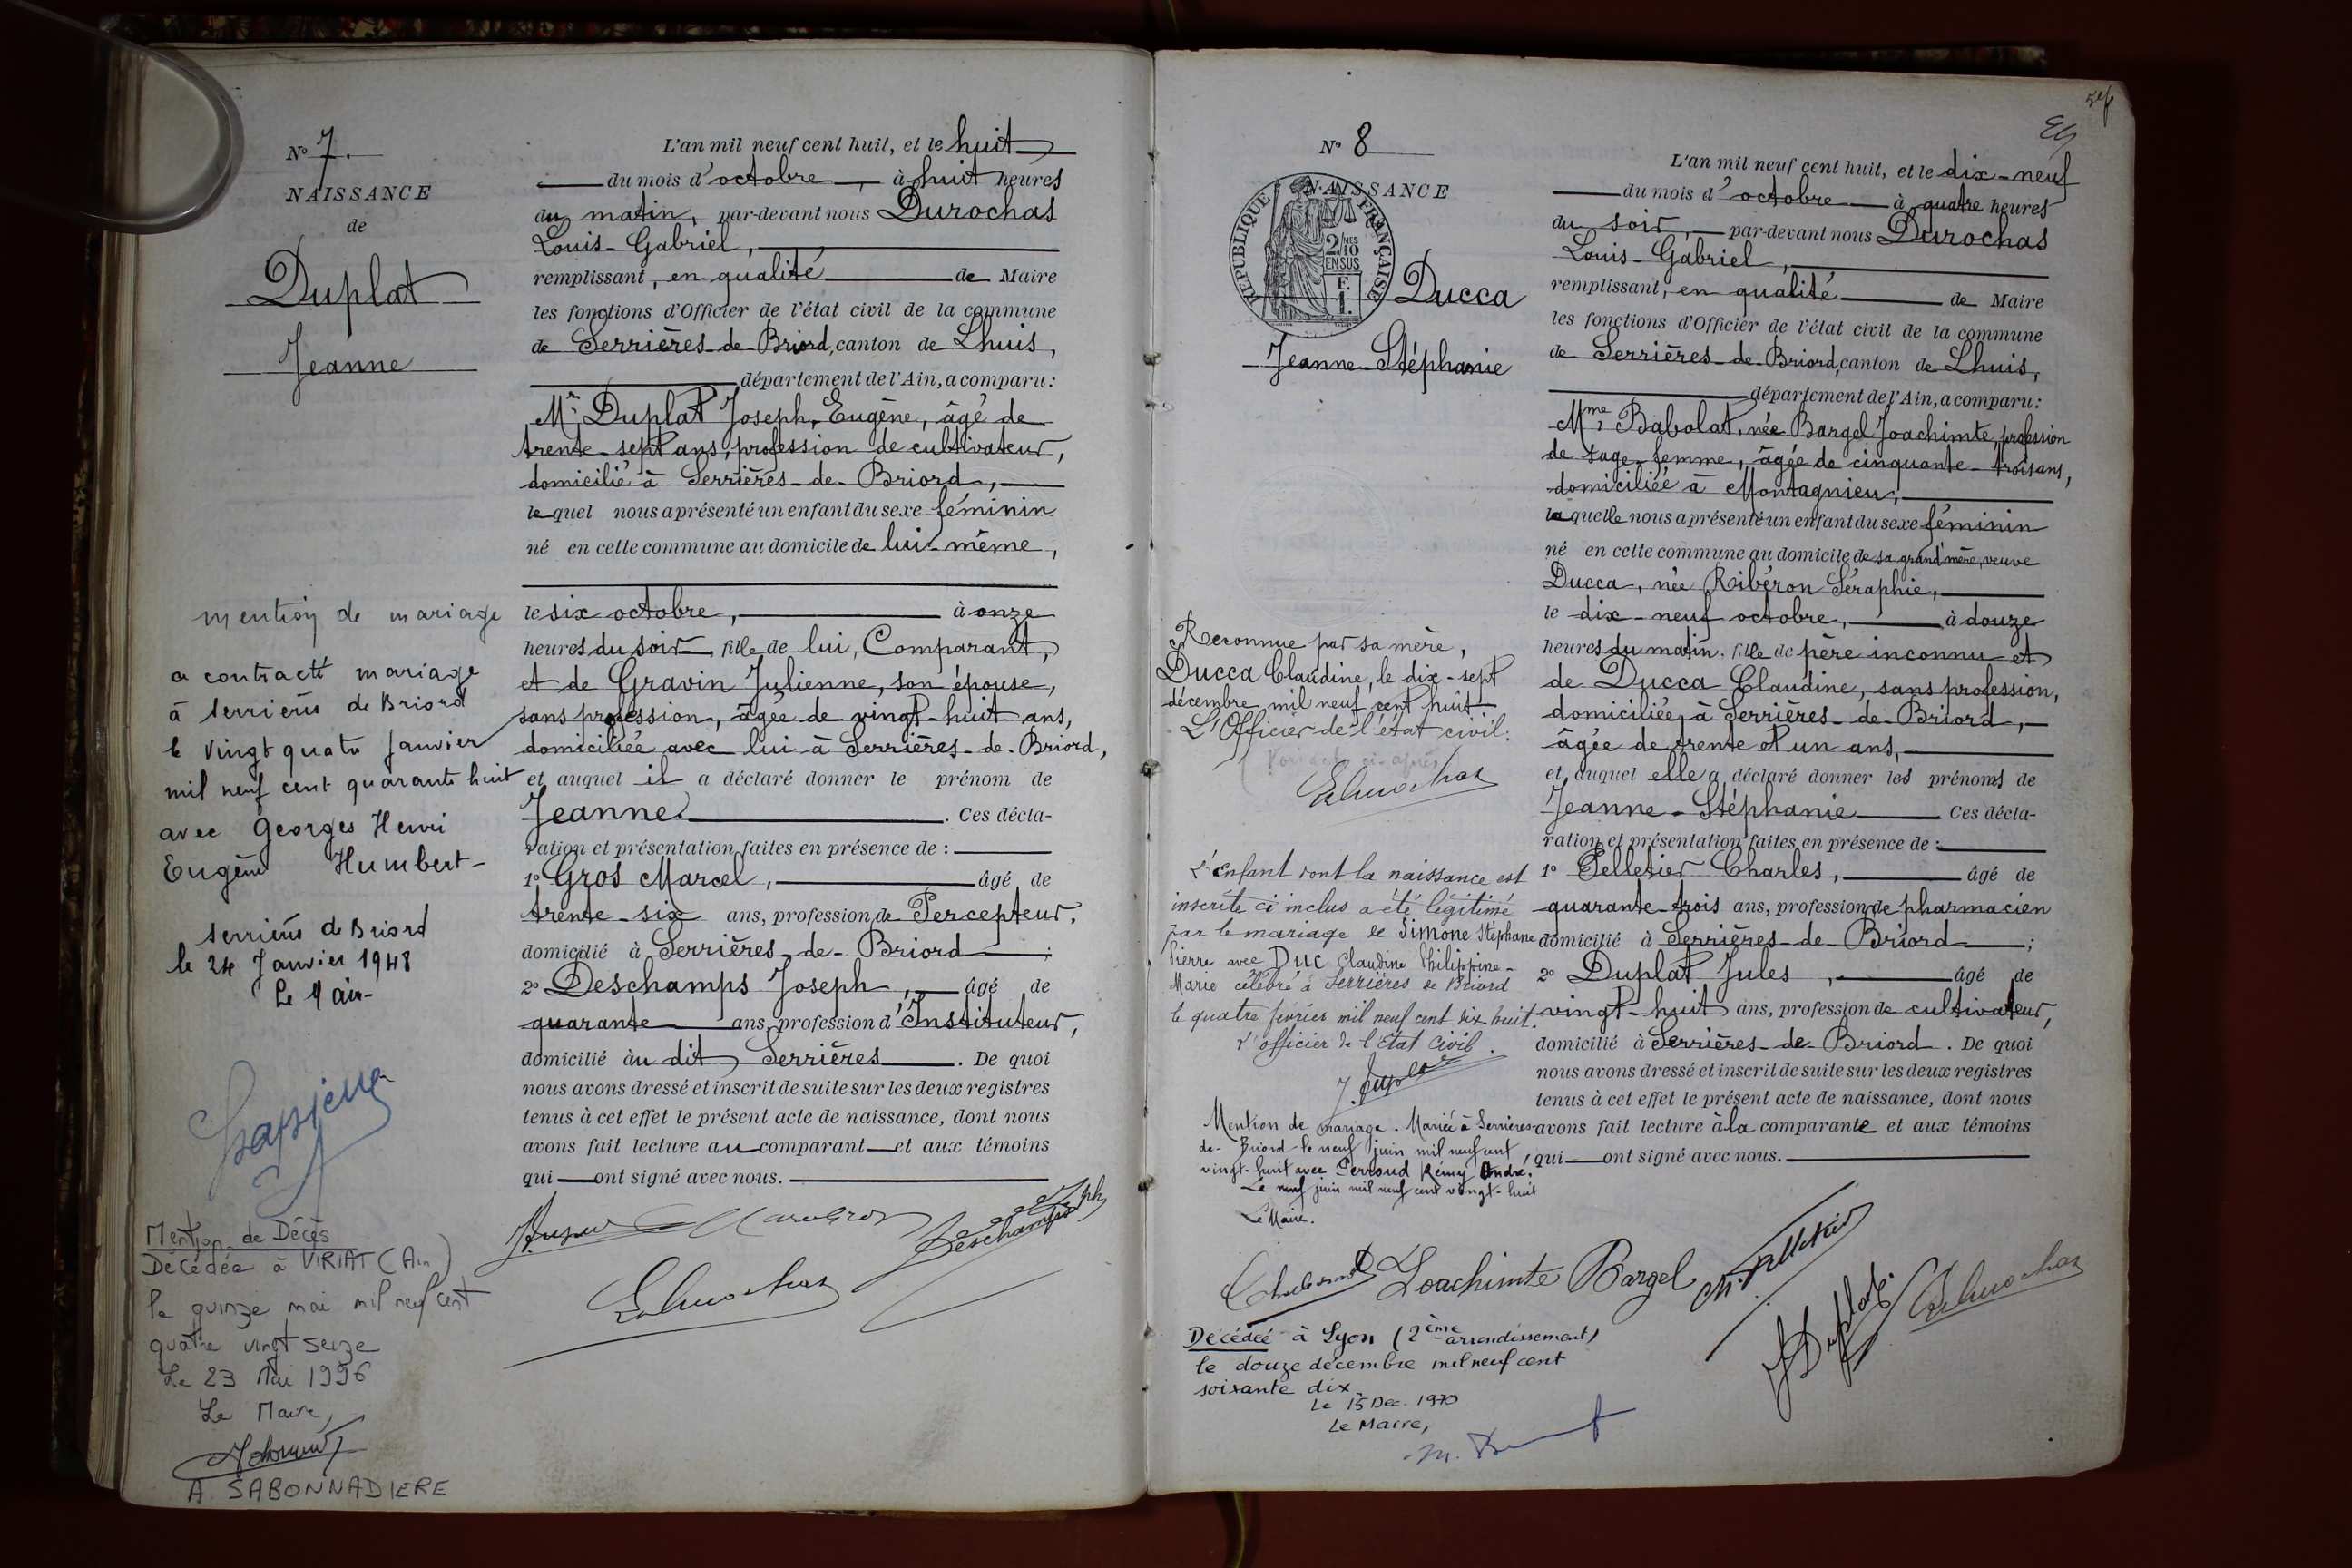 N° 7.
NAISSANCE
de
Duplat
Jeanne
L'an mil neuf cent huit, et le huit
du mois d'octobre, à huit heures
du matin, par-devant nous Durochas
Louis-Gabriel,
remplissant, en qualité de Maire
les fonctions d'Officier de l'état civil de la commune
de Serrières-de-Briord, canton de Lhuis,
département de l'Ain, a comparu:
Mr. Duplat Joseph-Eugène, âgé de
trente-sept ans, profession de cultivateur,
domicilié à Serrières-de-Briord,
lequel nous a présenté un enfant du sexe féminin
né en cette commune au domicile de lui-même,
le six octobre, à onze
heures du soir, fille de lui, Comparant,
et de Gravin Julienne, son épouse,
sans profession, âgée de vingt-huit ans,
domiciliée avec lui à Serrières-de-Briord,
et auquel il a déclaré donner le prénom de
Jeanne. Ces décla-
ration et présentation faites en présence de :
1° Gros Marcel, âgé de
trente-six ans, profession de Percepteur,
domicilié à Serrières-de-Briord ;
2° Deschamps Joseph, âgé de
quarante ans, profession d'Instituteur,
domicilié au dit Serrières. De quoi
nous avons dressé et inscrit de suite sur les deux registres
tenus à cet effet le présent acte de naissance, dont nous
avons fait lecture au comparant et aux témoins
qui ont signé avec nous.
Deschamps Jph
mention de mariage
a contracté mariage
à Serrières de Briord
le vingt quatre Janvier
mil neuf cent quarante huit
avec Georges Henri
Eugène Humbert-
Serrières de Briord
le 24 Janvier 1948
Le Maire
Mention de Décès
Décédée à VIRIAT (Ain)
le quinze mai mil neuf cent
quatre vingt seize
Le 23 Mai 1996
Le Maire,
A. SABONNADIERE
N° 8
NAISSANCE
REPUBLIQUE FRANÇAISE
2/10
EN SUS
F.
1.
Ducca
Jeanne-Stéphanie
L'an mil neuf cent huit, et le dix-neuf
du mois d'octobre à quatre heures
du soir, par-devant nous Durochas
Louis-Gabriel,
remplissant, en qualité de Maire
les fonctions d'Officier de l'état civil de la commune
de Serrières-de-Briord, canton de Lhuis,
département de l'Ain, a comparu:
Mme Babolat, née Bargel Joachimte, profession
de sage-femme, âgée de cinquante-trois ans,
domiciliée à Montagnieu,
laquelle nous a présenté un enfant du sexe féminin
né en cette commune au domicile de sa grand'mère, veuve
Ducca, née Ribéron Séraphie,
le dix-neuf octobre, à douze
heures du matin, fille de père inconnu et
de Ducca Claudine, sans profession,
domiciliée à Serrières-de-Briord,
âgée de trente et un ans,
et auquel elle a déclaré donner les prénoms de
Jeanne-Stéphanie Ces décla-
ration et présentation faites en présence de :
1° Pelletier Charles, âgé de
quarante-trois ans, profession de pharmacien
domicilié à Serrières-de-Briord ;
2° Duplat Jules, âgé de
vingt-huit ans, profession de cultivateur,
domicilié à Serrières-de-Briord. De quoi
nous avons dressé et inscrit de suite sur les deux registres
tenus à cet effet le présent acte de naissance, dont nous
avons fait lecture à la comparante et aux témoins
qui ont signé avec nous.
Joachimte Bargel
Ch. Pelletier
J Duplat
Reconnue par sa mère,
Ducca Claudine, le dix-sept
décembre mil neuf cent huit
L'Officier de l'état civil:
L'enfant dont la naissance est
inscrite ci inclus a été légitimé
par le mariage de Simone Stéphane
Pierre avec Duc Claudine Philippine-
Marie célébré à Serrières de Briord
le quatre février mil neuf cent dix huit.
L'officier de l'Etat Civil.
Mention de mariage. Mariée à Serrières-
de-Briord le neuf juin mil neuf cent
vingt-huit avec Perroud Rémy André.
Le neuf juin mil neuf cent vingt-huit
Le Maire.
Décédée à Lyon (2ème arrondissement)
le douze décembre mil neuf cent
soixante dix.
Le 15 Dec. 1970
Le Maire,